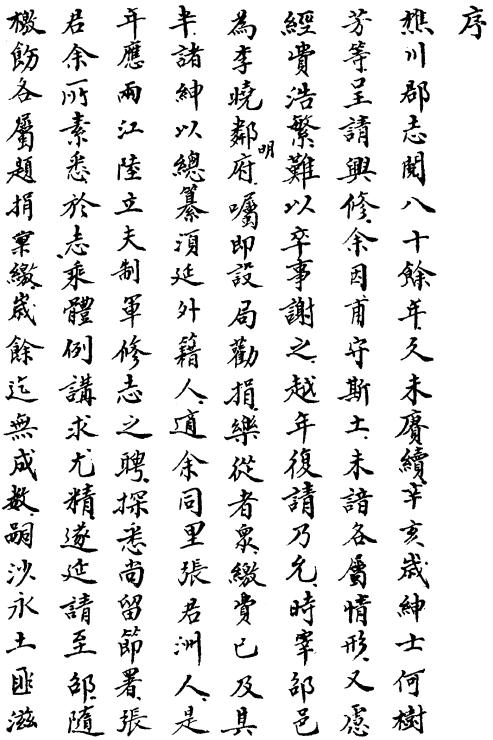 序
樵川郡志閱八十餘年久未賡續辛亥歲紳士何樹
芬等呈請興修余因甫守斯土未諳各屬情形又慮
經費浩繁難以卒事謝之越年復請乃允時宰邵邑
為李曉鄰明府囑即設局勸捐樂從者衆繳費已及其
半諸紳以總纂須延外籍人適余同里張君洲人是
年應兩江陸立夫制軍修志之聘探悉尚留節署張
君余所素悉於志乘體例講求尤精遂延請至邵隨
檄飭各屬題捐稟繳歲餘迄無成數嗣沙永土匪滋